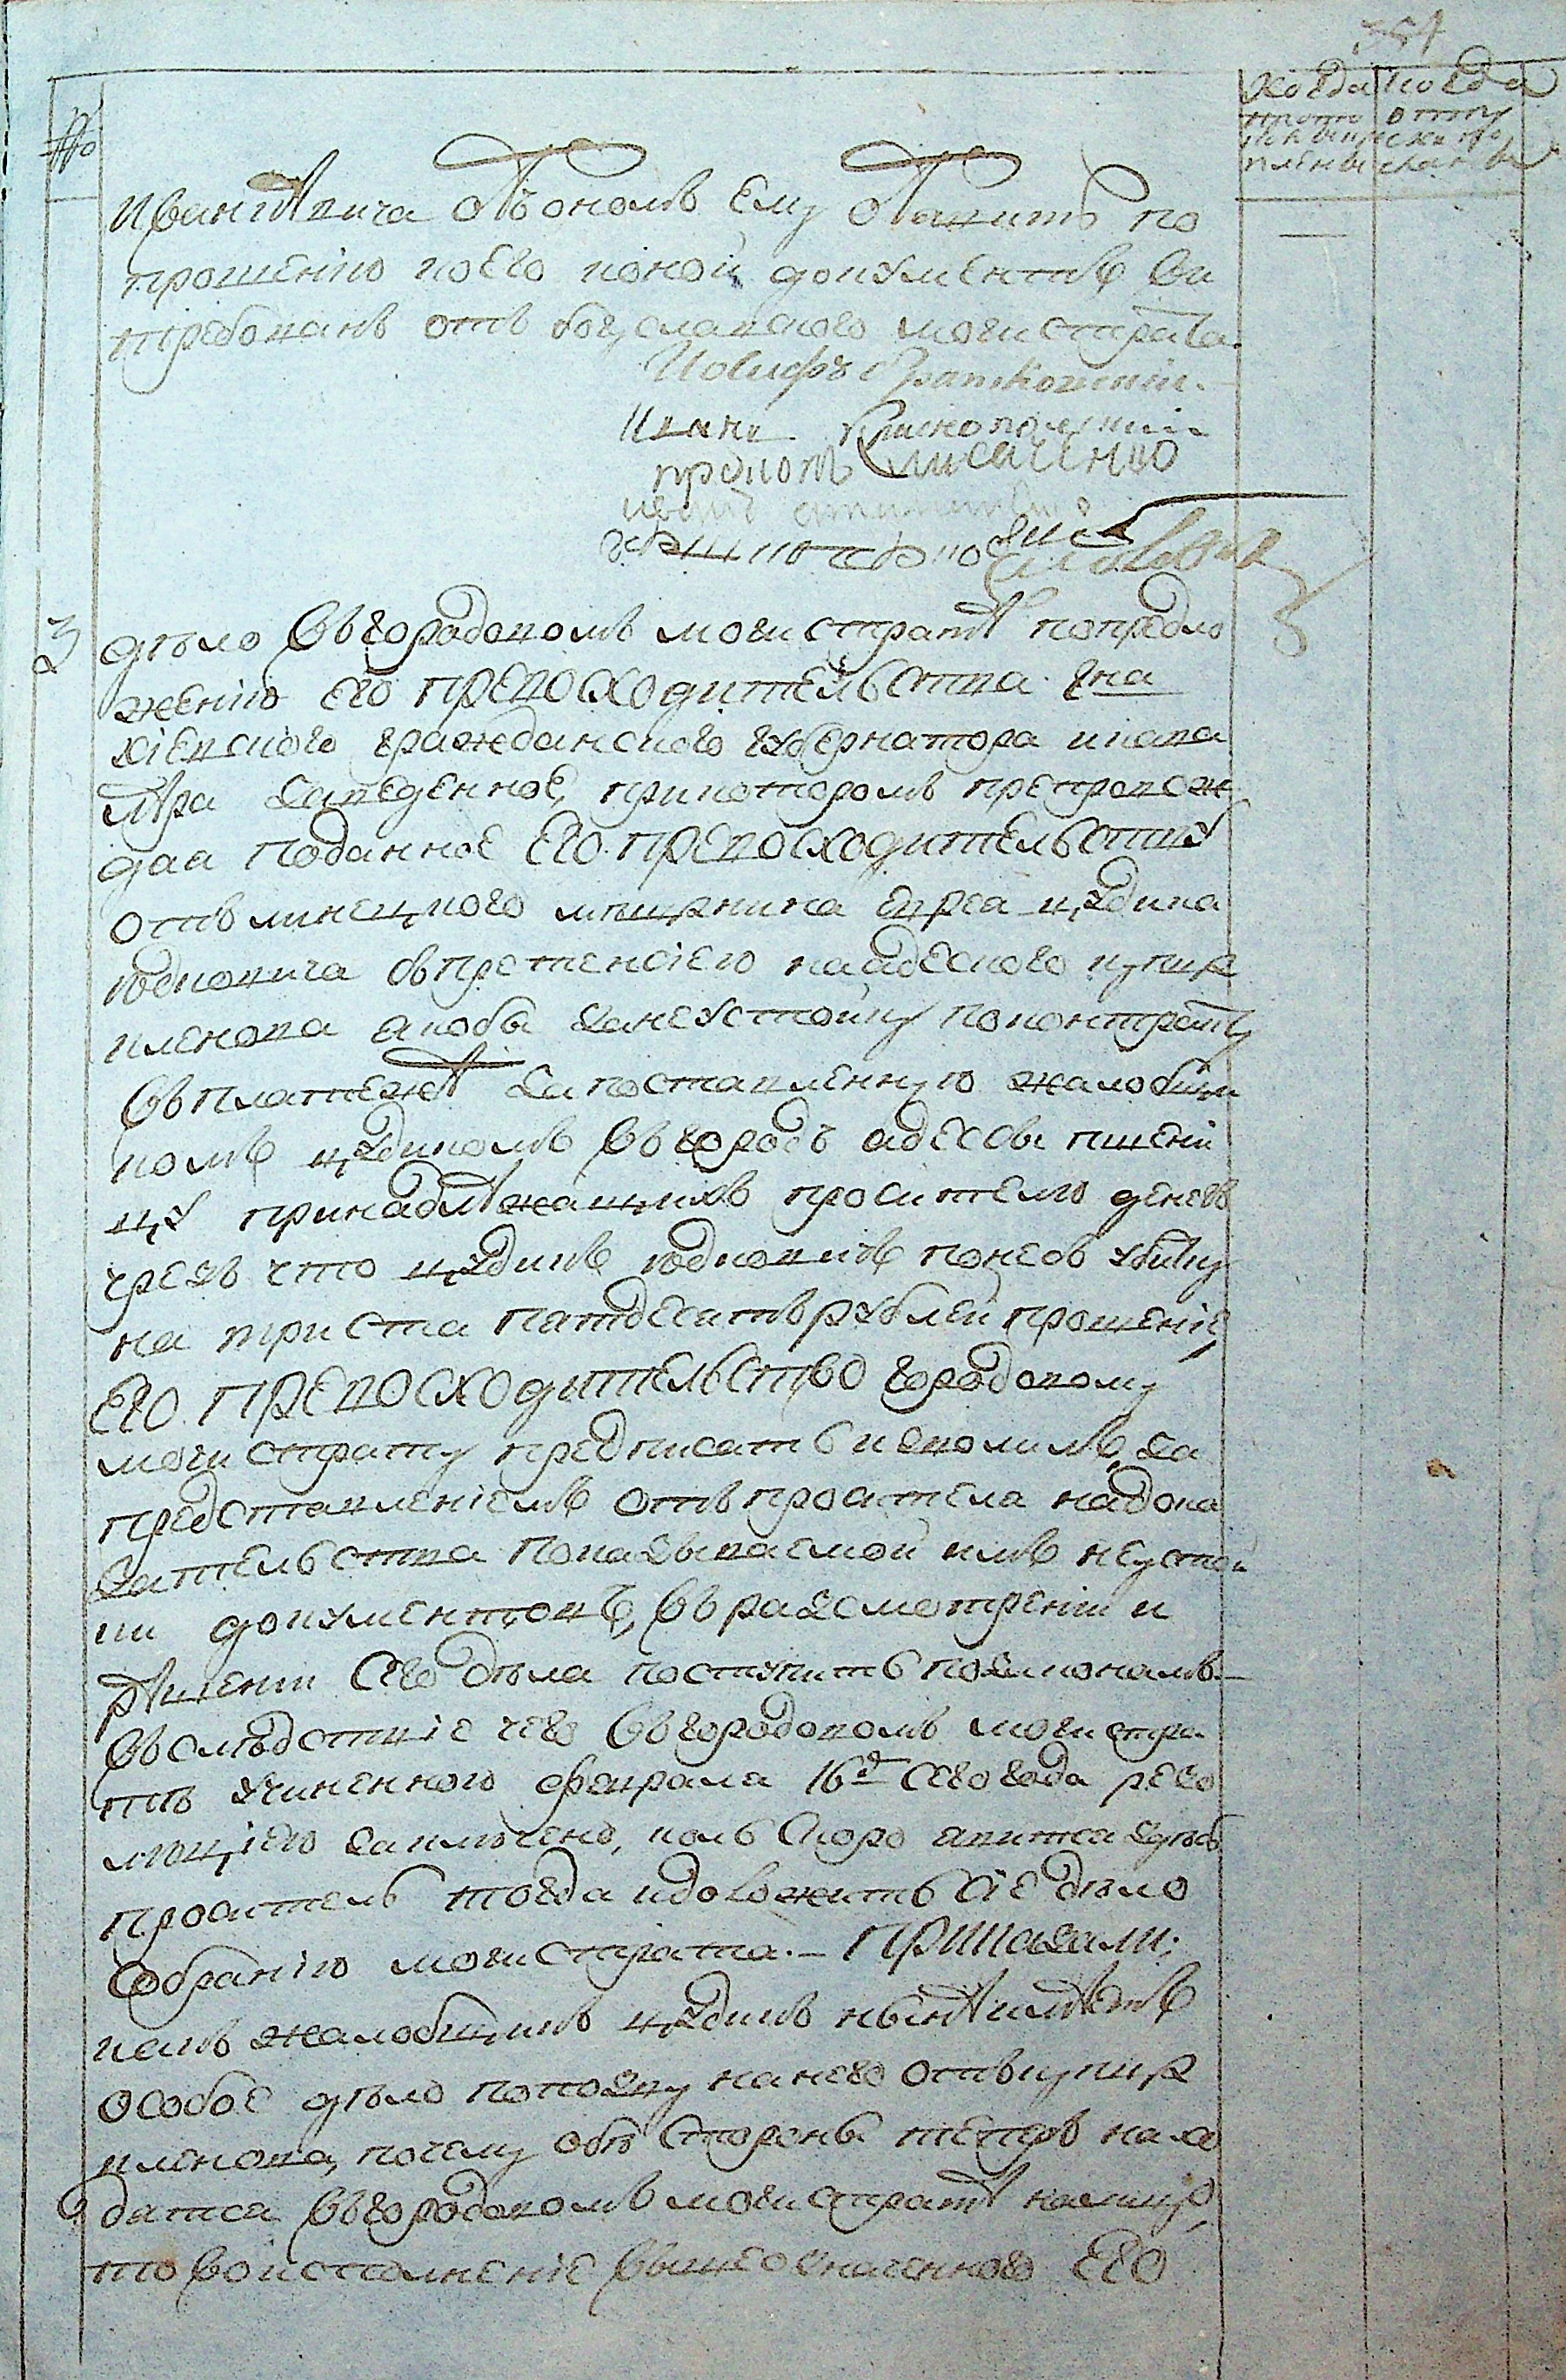 354
№
Когда Когда
отпу
Ивановича объ ономъ ему объявить по
прошенію коего коной документъ ви
требованъ отъ богуславского магистрата
Иосифъ
Иванъ
3
дѣло въ городовомъ магистратѣ по предло
женію его превосходительства гна
кіевского гражданского губернатора и кава
лѣра заведенное, при которомъ препровож
дая поданное его превосходительству
отъ линецкого мещанина еврея цудика
юдковича съ претенсіею на адеского купца
кленова якобы за неустойку по контракту
въ платежѣ за поставленную жалобщи
комъ цудикомъ въ городъ адессъ пшени
цу принадлѣжащихъ просителю денегъ
чрезъ что цудикъ юдковичъ понесъ убитку
на триста пятдесятъ рублей прошеніе,
его превосходительство городовому
магистрату предписать изволилъ, за
представленіемъ отъ просителя на дока
зательства показываемой имъ неустой
ки документовъ, въ разсмотреніи и
рѣшеніи сего дѣла поступить по законамъ
въ слѣдствіе чего въ городовомъ магистра
тѣ учиненною февраля 16д сего года резо
люціею заключено, коль скоро явится здѣсь
проситель тогда и доложить сіе дѣло
собранію магистрата. – Приказали:
какъ жалобщикъ цудикъ нынѣ имѣетъ
особое дѣло по иску на него отъ купца
кленова, почему обѣ стороны теперь нахо
дятся въ городовомъ магистратѣ налицо,
то во исполненіе вышеозначенного его